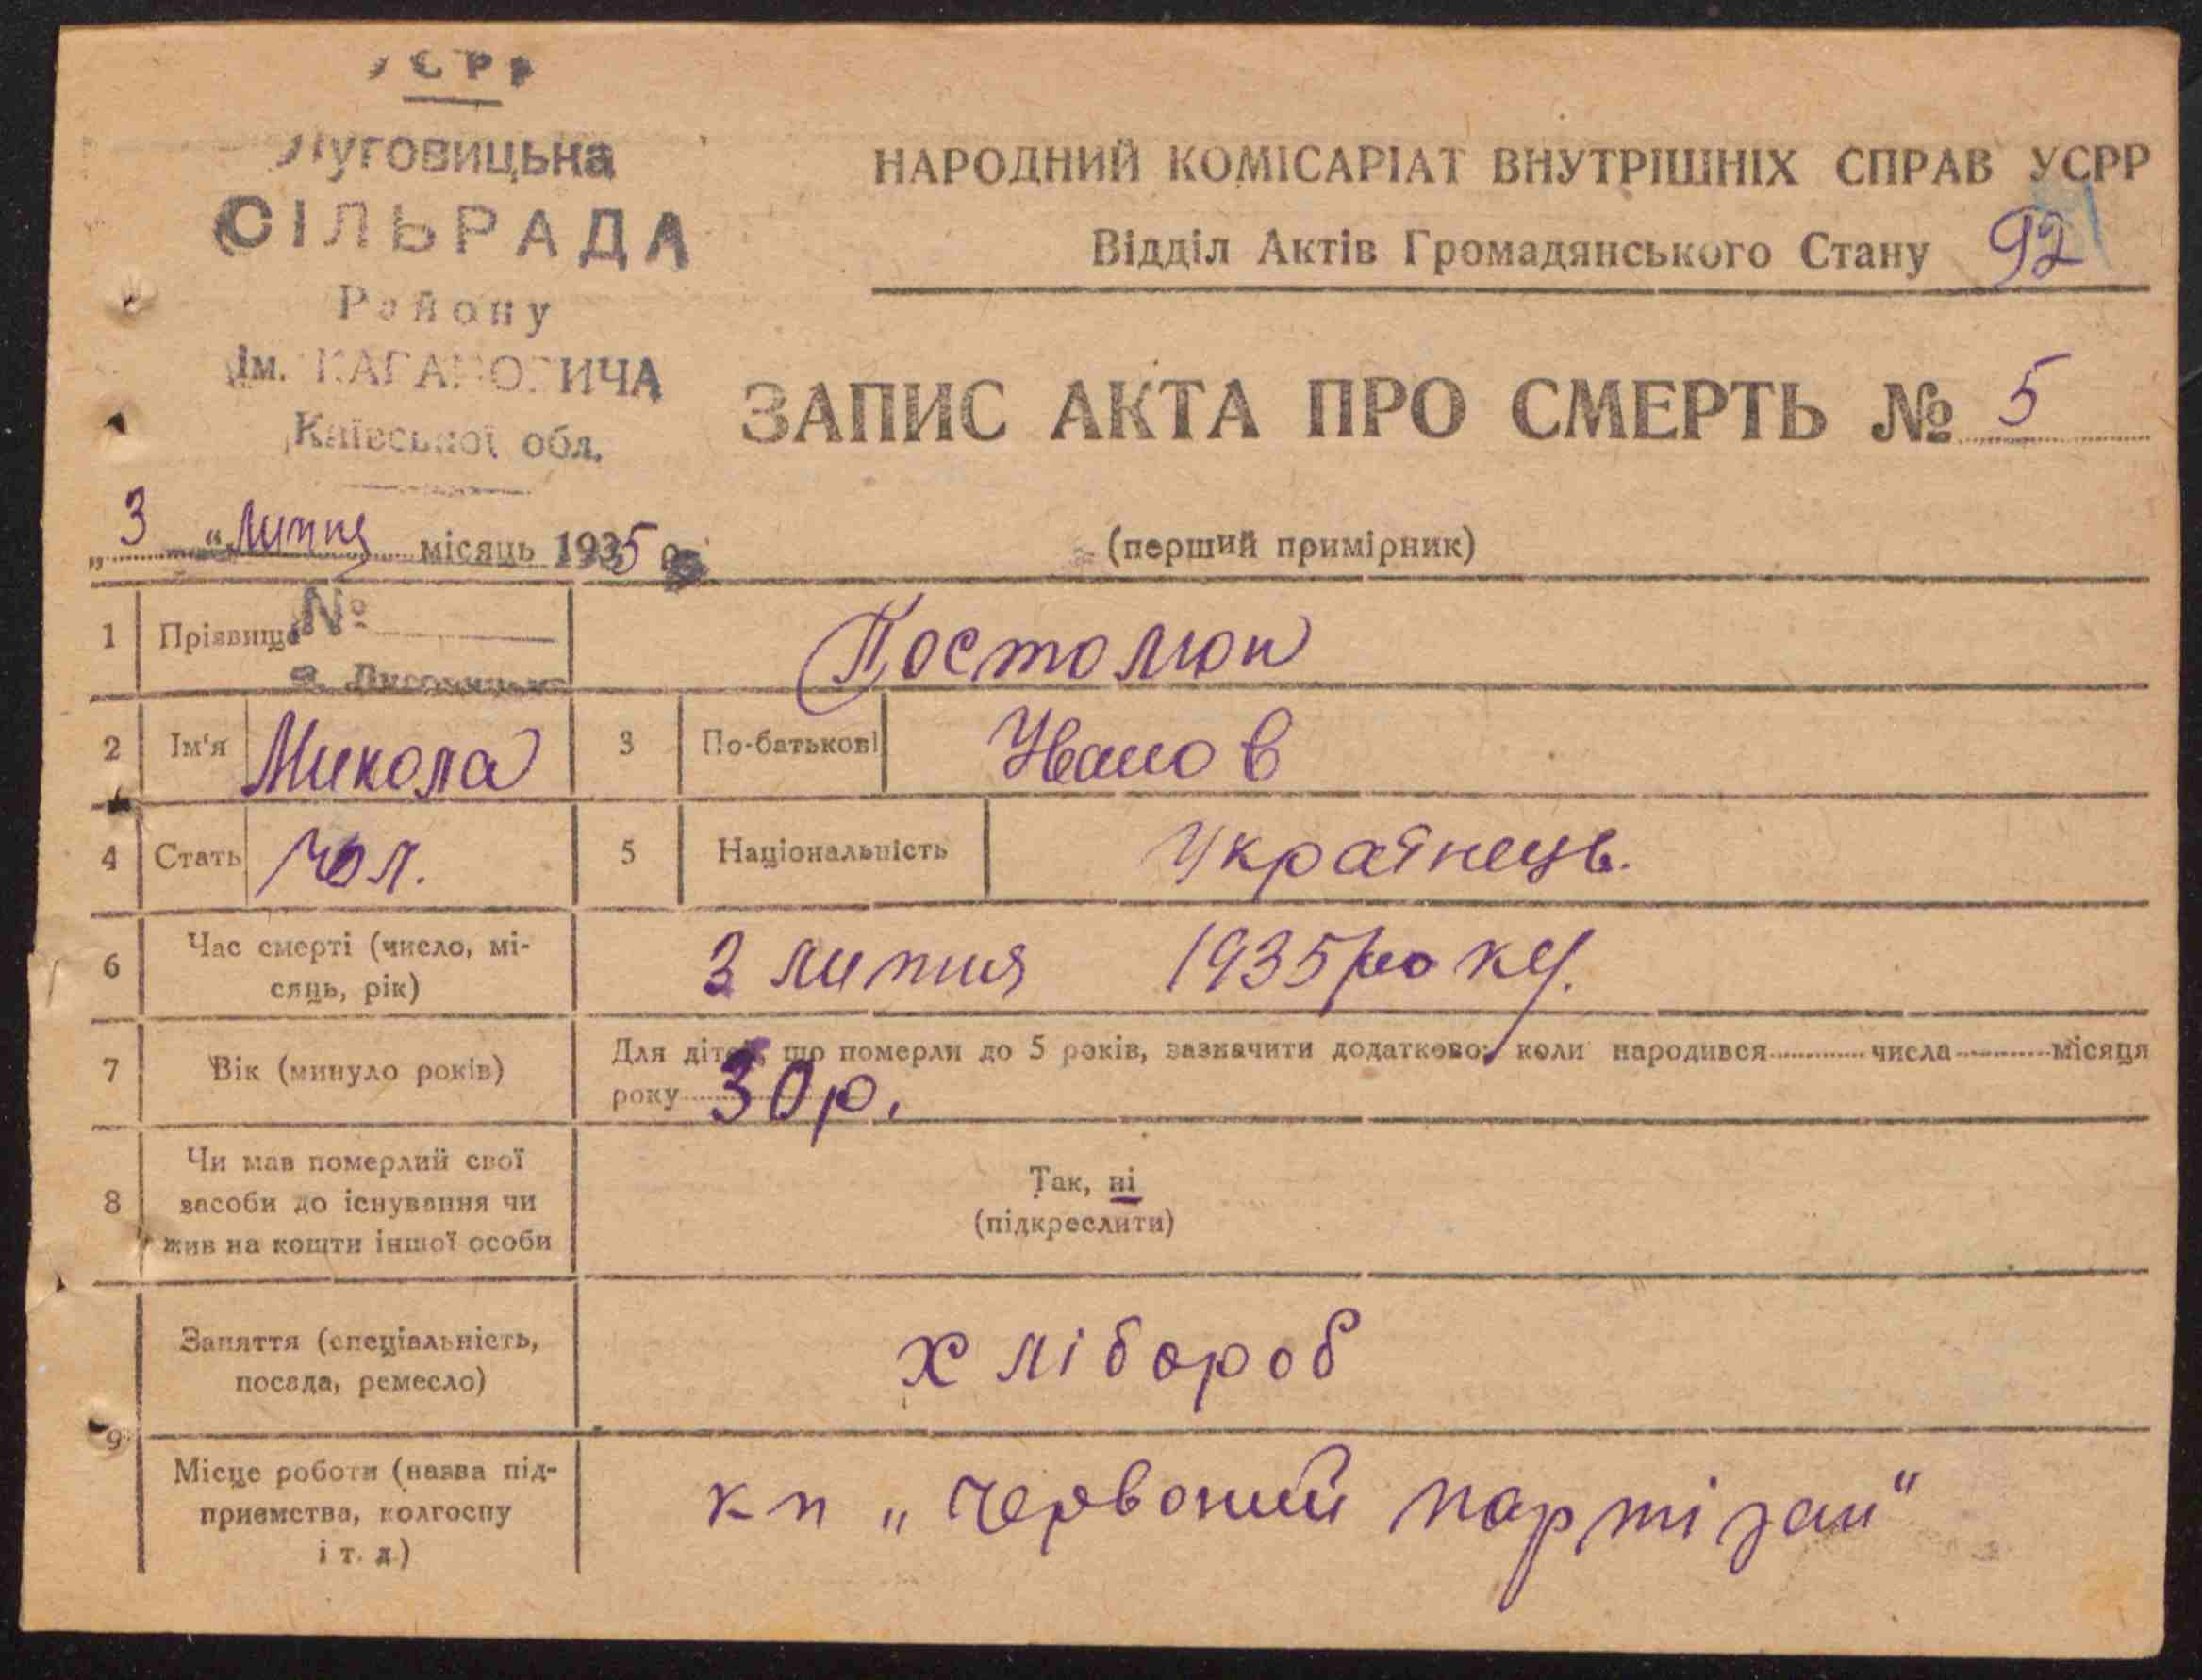 УСРР
Луговицька
СІЛЬРАДА
Району
Ім. КАГАНОВИЧА
Київської обл.
НАРОДНИЙ КОМІСАРІАТ ВНУТРІШНІХ СПРАВ УСРР
Відділ Актів Громадянського Стану 92
ЗАПИС АКТА ПРО СМЕРТЬ № 5
„ 3 “ Липня місяць 1935 р.
(перший примірник)
№
1 Прізвище Постолюк
2 Ім‘я Микола 3 По-батькові Иванов
4 Стать чол. 5 Національність Українець.
6 Час смерті (число, мі-
сяць, рік) 3 липня 1935 року.
7 Вік (минуло років) Для дітей, що померли до 5 років, зазначити додатково: коли народився числа місяця
року 30 р.
8 Чи мав померлий свої
засоби до існування чи
жив на кошти іншої особи
Так, ні
(підкреслити)
9 Заняття (спеціальність,
посада, ремесло) хлібороб
Місце роботи (назва під-
приємства, колгоспу
і т. д.) кп „червоний партізан“